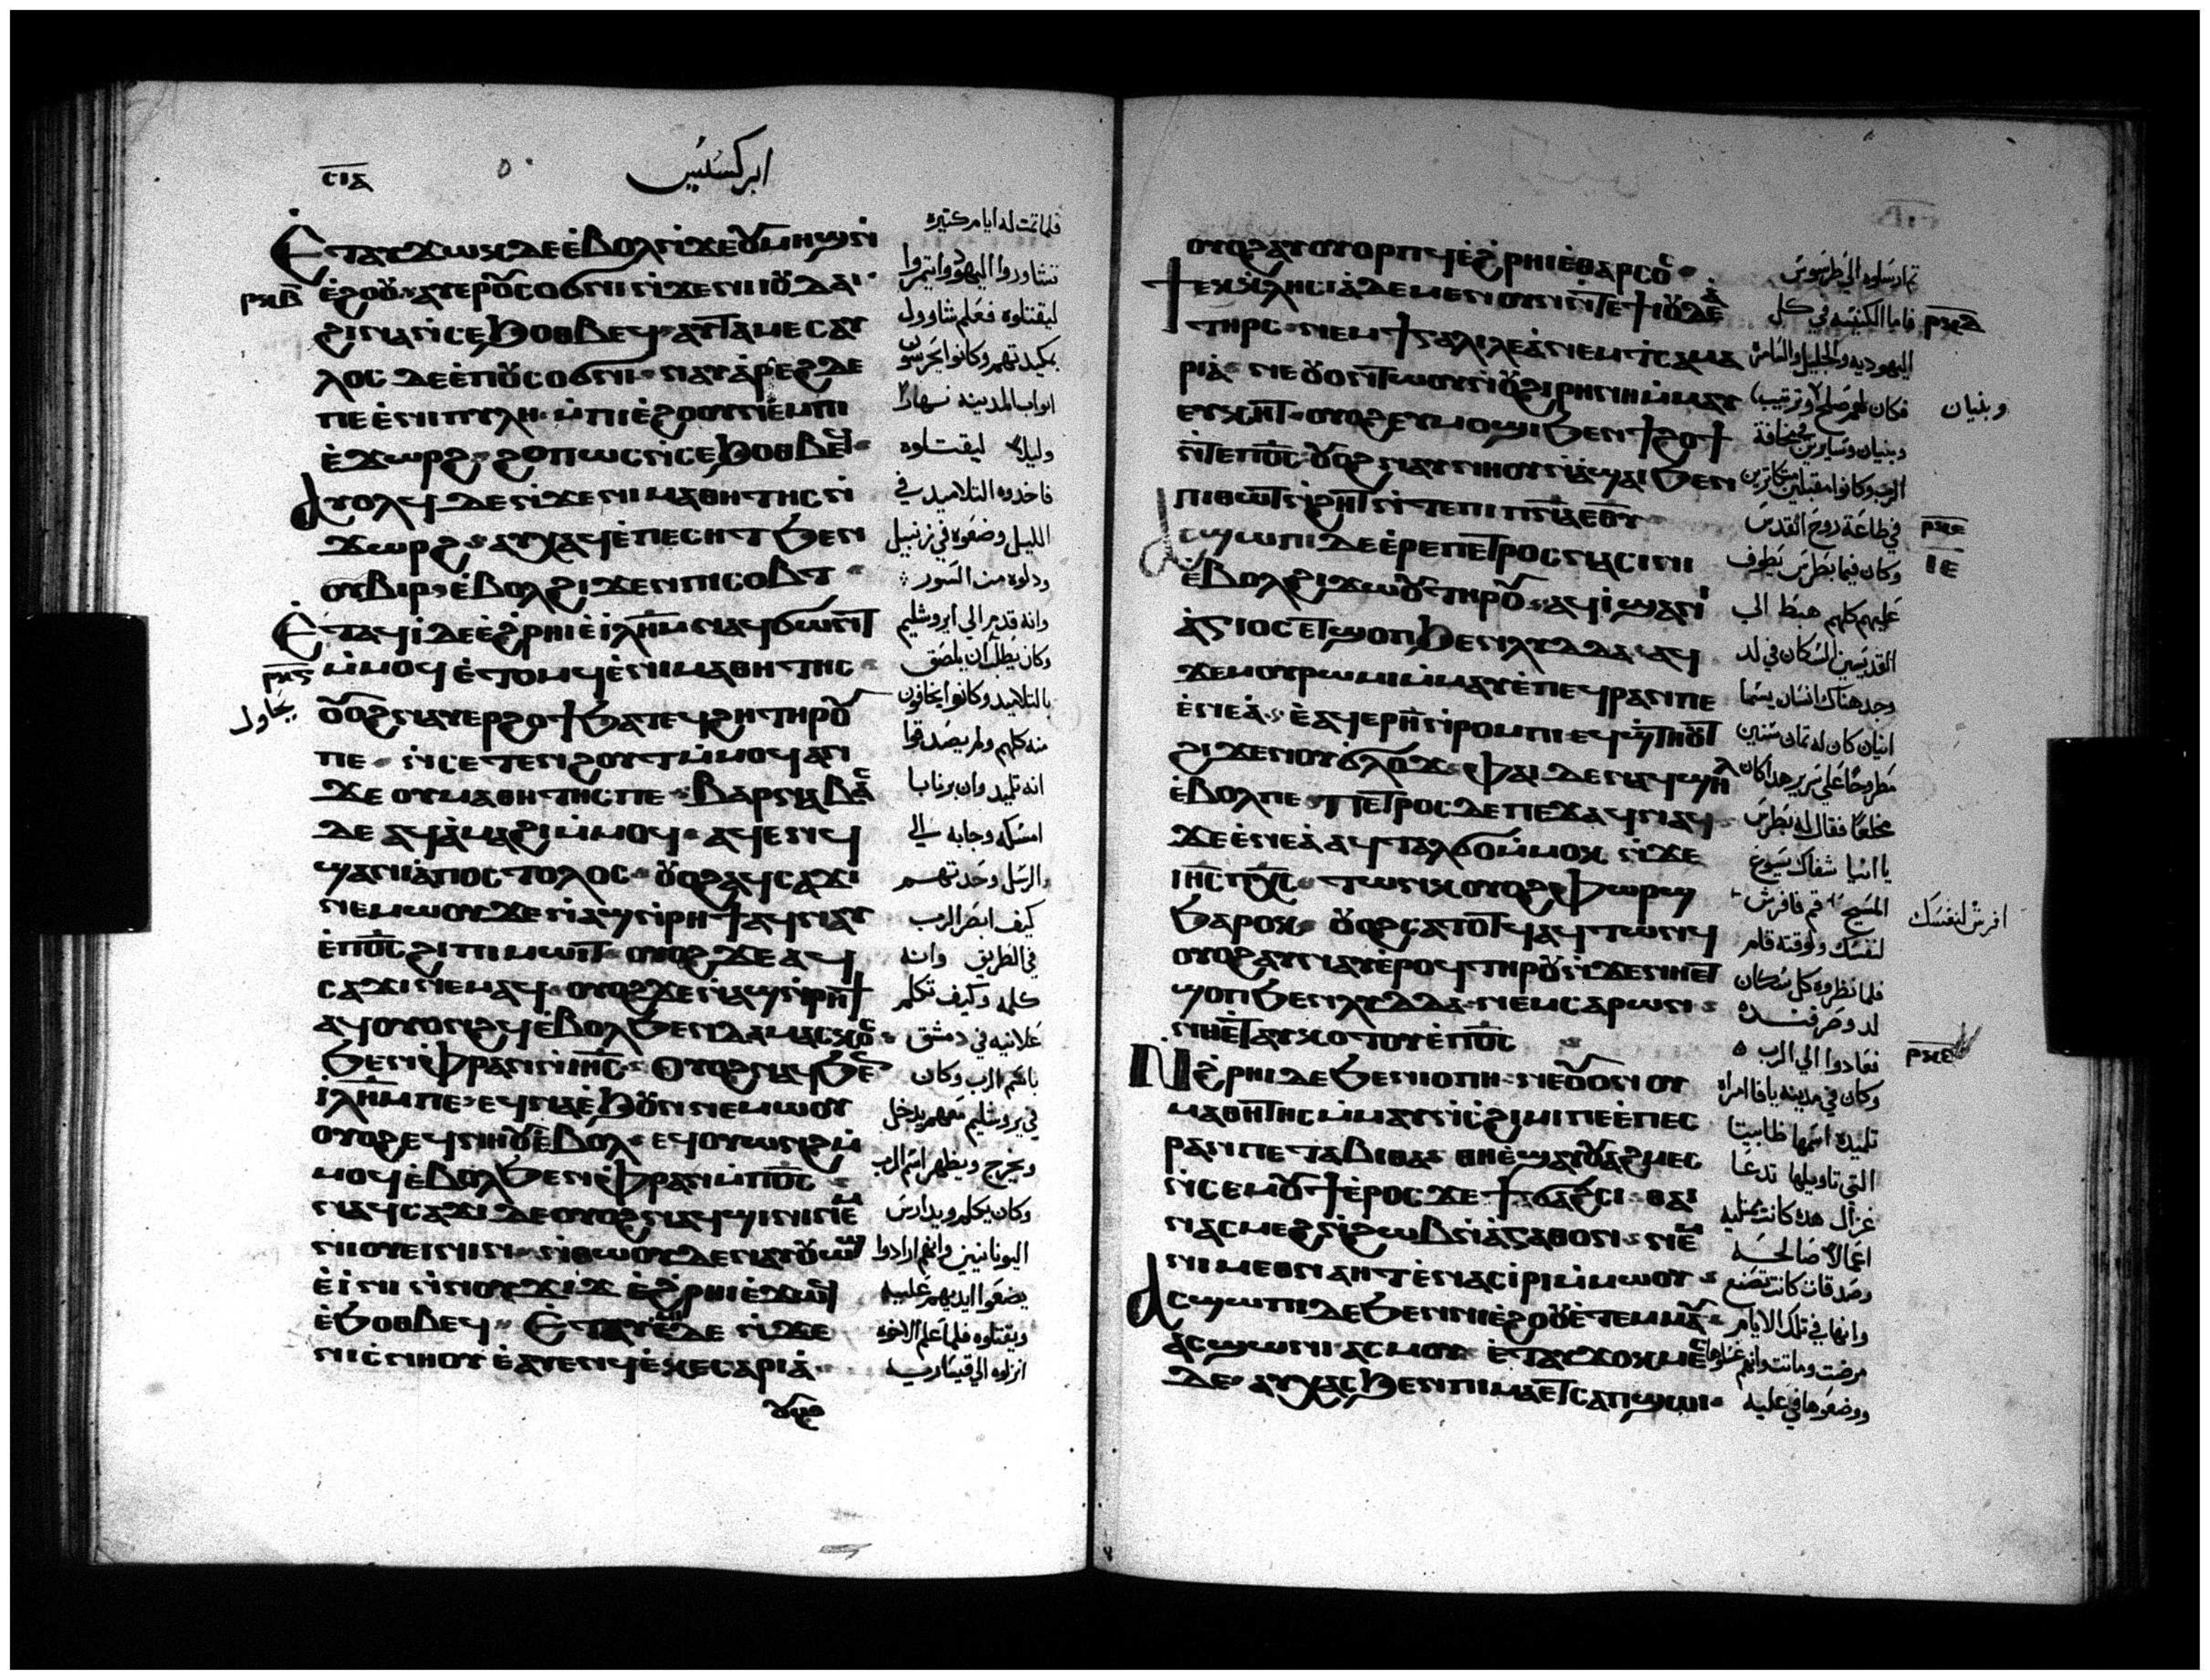 ⲥⲓⲁ
ابركسيس
Ⲉⲧⲁⲩϫⲱⲕ ⲇⲉ ⲉ̀ⲃⲟⲗ ⲛ̀ϫⲉ ⲟⲩⲙⲏϣ ⲛ̀
ⲣⲕⲃ
ⲉ̀ϩⲟⲟⲩ ⲁⲩⲉⲣⲟⲩⲥⲟϭⲛⲓ ⲛ̀ϫⲉ ⲛⲓⲓⲟⲩⲇⲁⲓ
ϩⲓⲛⲁ ⲛ̀ⲥⲉϧⲟⲑⲃⲉϥ ⲁⲩⲧⲁⲙⲉ ⲥⲁⲩ
ⲗⲟⲥ ⲇⲉ ⲉ̀ⲡⲟⲩⲥⲟϭⲛⲓ ⲛⲁⲩⲁ̀ⲣⲉϩ ⲇⲉ
ⲡⲉ ⲉ̀ⲛⲓⲡⲩⲗⲏ ⲙ̀ⲡⲓⲉ̀ϩⲟⲟⲩ ⲛⲉⲙ ⲡⲓ
ⲉ̀ϫⲱⲣϩ ϩⲟⲡⲱⲥ ⲛ̀ⲥⲉϧⲟⲑⲃⲉϥ
Ⲁⲩⲟⲗϥ ⲇⲉ ⲛ̀ϫⲉ ⲛⲓⲙⲁⲑⲏⲧⲏⲥ ⲛ̀
ϫⲱⲣϩ ⲁⲩⲭⲁϥ ⲉ̀ⲡⲉⲥⲏⲧ ϧⲉⲛ
ⲟⲩⲃⲓⲣ ⲉ̀ⲃⲟⲗ ϩⲓϫⲉⲛ ⲡⲓⲥⲟⲃⲧ
Ⲉⲧⲁϥⲓ̀ ⲇⲉ ⲉ̀ϩⲣⲏⲓ ⲉ̀ⲓⲗⲏⲙ ⲛⲁϥϭⲱⲛⲧ
ⲙ̀ⲙⲟϥ ⲉ̀ⲧⲟⲙϥ ⲉ̀ⲛⲓⲙⲁⲑⲏⲧⲏⲥ
ⲣⲕⲅ
ⲟⲩⲟϩ ⲛⲁⲩⲉⲣϩⲟϯ ϧⲁⲧⲉϥϩⲏ ⲧⲏⲣⲟⲩ
ⲡⲉ ⲛ̀ⲥⲉⲧⲉⲛϩⲟⲩⲧ ⲙ̀ⲙⲟϥ ⲁⲛ
ϫⲉ ⲟⲩⲙⲁⲑⲏⲧⲏⲥ ⲡⲉ ⲃⲁⲣⲛⲁⲃⲁⲥ
ⲇⲉ ⲁϥⲁ̀ⲙⲁϩⲓ ⲙ̀ⲙⲟϥ ⲁϥⲉⲛϥ
ϣⲁ ⲛⲓⲁ̀ⲡⲟⲥⲧⲟⲗⲟⲥ ⲟⲩⲟϩ ⲁϥⲥⲁϫⲓ
ⲛⲉⲙⲱⲟⲩ ϫⲉ ⲛ̀ⲁϣ ⲛ̀ⲣⲏϯ ⲁϥⲛⲁⲩ
ⲉ̀ⲡⲟⲥ ϩⲓ ⲡⲓⲙⲱⲓⲧ ⲟⲩⲟϩ ϫⲉ ⲁϥ
ⲥⲁϫⲓ ⲛⲉⲙⲁϥ ⲟⲩⲟϩ ϫⲉ ⲛⲁϣ ⲛ̀ⲣⲏϯ
ⲁϥⲟⲩⲟⲛϩϥ ⲉ̀ⲃⲟⲗ ϧⲉⲛ ⲇⲁⲙⲁⲥⲕⲟⲥ
ϧⲉⲛ ⲫ̀ⲣⲁⲛ ⲛ̀ⲓⲏⲥ Ⲟⲩⲟϩ ⲛⲁϥϧⲉⲛ
ⲓⲗⲏⲙ ⲡⲉ ⲉϥⲛⲁ ⲉ̀ϧⲟⲩⲛ ⲛⲉⲙⲱⲟⲩ
ⲟⲩⲟϩ ⲉϥⲛⲏⲟⲩ ⲉ̀ⲃⲟⲗ ⲉϥⲟⲩⲱⲛϩ ⲙ̀
ⲙⲟϥ ⲉ̀ⲃⲟⲗ ϧⲉⲛ ⲫ̀ⲣⲁⲛ ⲙ̀ⲡⲟⲥ
ⲛⲁϥⲥⲁϫⲓ ⲇⲉ ⲟⲩⲟϩ ⲛⲁϥϣⲓⲛⲓ ⲛⲉⲙ
ⲛⲓⲟⲩⲉⲓⲛⲓⲛ ⲛ̀ⲑⲱⲟⲩ ⲇⲉ ⲛⲁⲩⲟⲩⲱϣ
ⲉ̀ⲓ̀ⲛⲓ ⲛ̀ⲛⲟⲩϫⲓϫ ⲉ̀ϩⲣⲏⲓ ⲉ̀ϫⲱϥ
ⲉ̀ϧⲟⲑⲃⲉϥ Ⲉⲧⲁⲩⲉⲙⲓ ⲇⲉ ⲛ̀ϫⲉ
ⲛⲓⲥ̀ⲛⲏⲟⲩ ⲉ̀ⲁⲩⲉⲛϥ ⲉ̀ⲕⲉⲥⲁⲣⲓⲁ̀
ⲟⲩⲟϩ
فلما تمت له ايام كتيره
تشاوروا اليهود وايتمروا
ليقتلوه فعلم شاوول
بمكيدتهم وكانوا يحرسون
ابواب المدينه نهارا
وليلا ليقتلوه
فاخدوه التلاميد في
الليل وضعوه في زنبيل
ودلوه من السور
وانه قدم الي ايروشليم
وكان يطلب ان يلصق
يحاول
بالتلاميد وكانوا يخافون
منه كلهم ولم يصدقوا
انه تلميد وان برنابا
امسكه وجابه الي
الرسل وحدتهم
كيف ابصر الرب
في الطريق وانه
كلمه وكيف تكلم
علانيه في دمشق
باسم الرب وكان
في يروشليم معهم يدخل
ويخرج ويظهر اسم الرب
وكان يكلم ويدارس
اليونانيين وانهم ارادوا
يضعوا ايديهم عليه
ويقتلوه فلما علم الاخوه
انزلوه الي قيساريه
ⲟⲩⲟϩ ⲁⲩⲟⲩⲟⲣⲡϥ ⲉ̀ϩⲣⲏⲓ ⲉ̀ⲑⲁⲣⲥⲟⲥ
Ϯⲉⲕⲕⲗⲏⲥⲓⲁ̀ ⲇⲉ ⲙⲉⲛ ⲟⲩⲛ ⲛ̀ⲧⲉ ϯⲓⲟⲩⲇⲉⲁ̀
ⲧⲏⲣⲥ ⲛⲉⲙ ϯⲅⲁⲗⲓⲗⲉⲁ̀ ⲛⲉⲙ ϯⲥⲁⲙⲁ
ⲣⲓⲁ̀ ⲛⲉ ⲟⲩⲟⲛⲧⲱⲟⲩ ⲛ̀ⲟⲩϩⲓⲣⲏⲛⲏ ⲙ̀ⲙⲁⲩ
ⲉⲩⲕⲏⲧ ⲟⲩⲟϩ ⲉⲩⲙⲟϣⲓ ϧⲉⲛ ϯϩⲟϯ
ⲛ̀ⲧⲉ ⲡⲟⲥ ⲟⲩⲟϩ ⲛⲁⲩⲛⲏⲟⲩ ⲛ̀ⲁ̀ϣⲁⲓ ϧⲉⲛ
ⲡⲓⲑⲱⲧ ⲛ̀ϩⲏⲧ ⲛ̀ⲧⲉ ⲡⲓⲡⲛⲁ ⲉⲑⲩ
Ⲁⲥϣⲱⲡⲓ ⲇⲉ ⲉ̀ⲣⲉ ⲡⲉⲧⲣⲟⲥ ⲛⲁⲥⲓⲛⲓ
ⲉ̀ⲃⲟⲗ ϩⲓϫⲱⲟⲩ ⲧⲏⲣⲟⲩ ⲁϥⲓ̀ ϣⲁ ⲛⲓ
ⲁ̀ⲅⲓⲟⲥ ⲉⲧϣⲟⲡ ϧⲉⲛ ⲗⲩⲇⲇⲁ ⲁϥ
ϫⲉⲙ ⲟⲩⲣⲱⲙⲓ ⲙ̀ⲙⲁⲩ ⲉ̀ⲡⲉϥⲣⲁⲛ ⲡⲉ
ⲉ̀ⲛⲉⲁ̀ ⲉ̀ⲁϥⲉⲣ ⲏ̅ ⲛ̀ⲣⲟⲙⲡⲓ ⲉϥϣⲧⲏⲟⲩⲧ
ϩⲓϫⲉⲛ ⲟⲩϭⲗⲟϫ ⲫⲁⲓ ⲇⲉ ⲛⲁϥϣⲏⲗ
ⲉ̀ⲃⲟⲗ ⲡⲉ ⲡⲉⲧⲣⲟⲥ ⲇⲉ ⲡⲉϫⲁϥ ⲛⲁϥ
ϫⲉ ⲉ̀ⲛⲉⲁ̀ ⲁϥⲧⲁⲗϭⲟ ⲙ̀ⲙⲟⲕ ⲛ̀ϫⲉ
ⲓⲏⲥ ⲡⲭⲥ ⲧⲱⲛⲕ ⲟⲩⲟϩ ⲫⲱⲣϣ
ϧⲁⲣⲟⲕ ⲟⲩⲟϩ ⲥⲁⲧⲟⲧϥ ⲁϥⲧⲱⲛϥ
ⲟⲩⲟϩ ⲁⲩⲛⲁⲩ ⲉ̀ⲣⲟϥ ⲧⲏⲣⲟⲩ ⲛ̀ϫⲉ ⲛⲏⲉⲧ
ϣⲟⲡ ϧⲉⲛ ⲗⲩⲇⲇⲁ ⲛⲉⲙ ⲥⲁⲣⲱⲛ
ⲛⲏⲉⲧⲁⲩⲕⲟⲧⲟⲩ ⲉ̀ⲡⲟⲥ
Ⲛϩ̀ⲣⲏⲓ ⲇⲉ ϧⲉⲛ ⲓⲟⲡⲏ ⲛⲉ ⲟⲩⲟⲛ ⲟⲩ
ⲙⲁⲑⲏⲧⲏⲥ ⲙ̀ⲙⲁⲩ ⲛ̀ⲥϩⲓⲙⲓ ⲡⲉ ⲉ̀ⲡⲉⲥ
ⲣⲁⲛ ⲡⲉ ⲧⲁⲃⲓⲑⲁ ⲑⲏⲉ̀ϣⲁⲩⲟⲩⲁϩⲙⲉⲥ
ⲛ̀ⲥⲉⲙⲟⲩϯ ⲉ̀ⲣⲟⲥ ϫⲉ ϯϭⲁϩⲥⲓ ⲑⲁⲓ
ⲛⲁⲥⲙⲉϩ ⲛ̀ϩⲱⲃ ⲛ̀ⲁ̀ⲅⲁⲑⲟⲛ ⲛⲉⲙ
ⲛⲓⲙⲉⲑⲛⲁⲏⲧ ⲉ̀ⲛⲁⲥⲓ̀ⲣⲓ ⲙ̀ⲙⲱⲟⲩ
Ⲁⲥϣⲱⲡⲓ ⲇⲉ ϧⲉⲛ ⲛⲓⲉ̀ϩⲟⲟⲩ ⲉ̀ⲧⲉⲙⲙⲁⲩ
ⲁⲥϣⲱⲛⲓ ⲁⲥⲙⲟⲩ ⲉ̀ⲧⲁⲩϫⲟⲕⲙⲉⲥ
ⲇⲉ ⲁⲩⲭⲁⲥ ϧⲉⲛ ⲡⲓⲙⲁ ⲉⲧⲥⲁⲡϣⲱⲓ
تم ارسلوه الي طرسوس
ⲣⲕⲇ
فاما الكنيسه في كل
اليهوديه والجليل والسامره
فكان لهم صلح وترتيب
وبنيان
وبنيان وسايرين بمخافة
الرب وكانوا مقبلين متكاترين
في طاعة روح القدس
ⲣⲕⲉ
ⲓⲉ
وكان فيما بطرس يطوف
عليهم كلهم هبط الي
القديسين السكان في لد
وجد هناك انسان يسما
انياس كان له تمان سنين
مطروحا علي سرير هدا كان
مخلعا فقال له بطرس
يا انيا شفاك يسوع
المسيح قم فافرش
افرش لنفسك
لنفسك ولوقته قام
فلما نظروه كل سكان
لد وصرفنده
فعادوا الي الرب
وكان في مدينه يافا امراه
تلميده اسمها طابيتا
التي تاويلها تدعا
غزال هده كانت ممتليه
اعمالا صالحه
وصدقات كانت تصنع
وانها في تلك الايام
مرضت وماتت وانهم غسلوها
ووضعوها في عليه